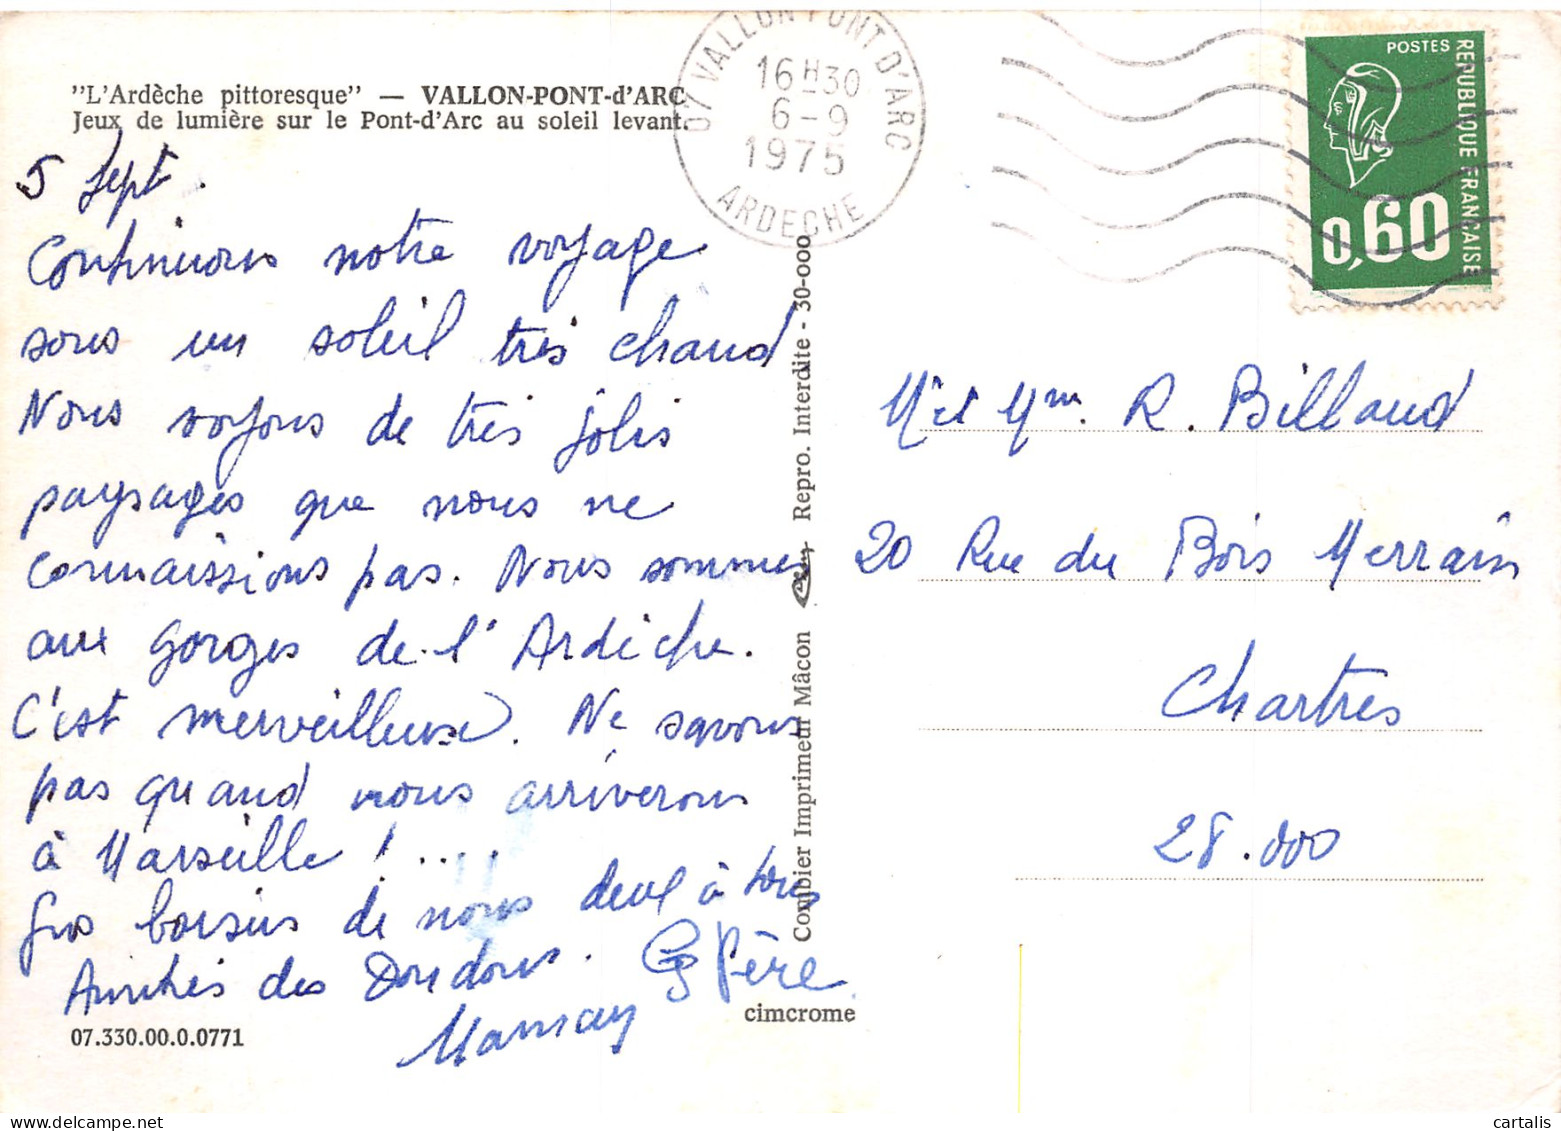 "L'Ardèche pittoresque" — VALLON-PONT-d'ARC
Jeux de lumière sur le Pont-d'Arc au soleil levant.
07 VALLON PONT D'ARC
16H30
6-9
1975
ARDECHE
POSTES
REPUBLIQUE FRANÇAISE
0,60
5 Sept.
Continuons notre voyage
sous un soleil très chaud
Nous voyons de très jolis
paysages que nous ne
connaissions pas. Nous sommes
aux Gorges de l'Ardèche.
C'est merveilleuse. Ne savons
pas quand nous arriverons
à Marseille !....
Gros baisers de nous deux à tous
Amitiés des Doudous. Père
07.330.00.0.0771
cimcrome
Combier Imprimeur Mâcon Repro. Interdite - 30-000
Mr et Mm. R. Billaud
20 Rue du Bois Merrain
Chartres
28.000
cartalis